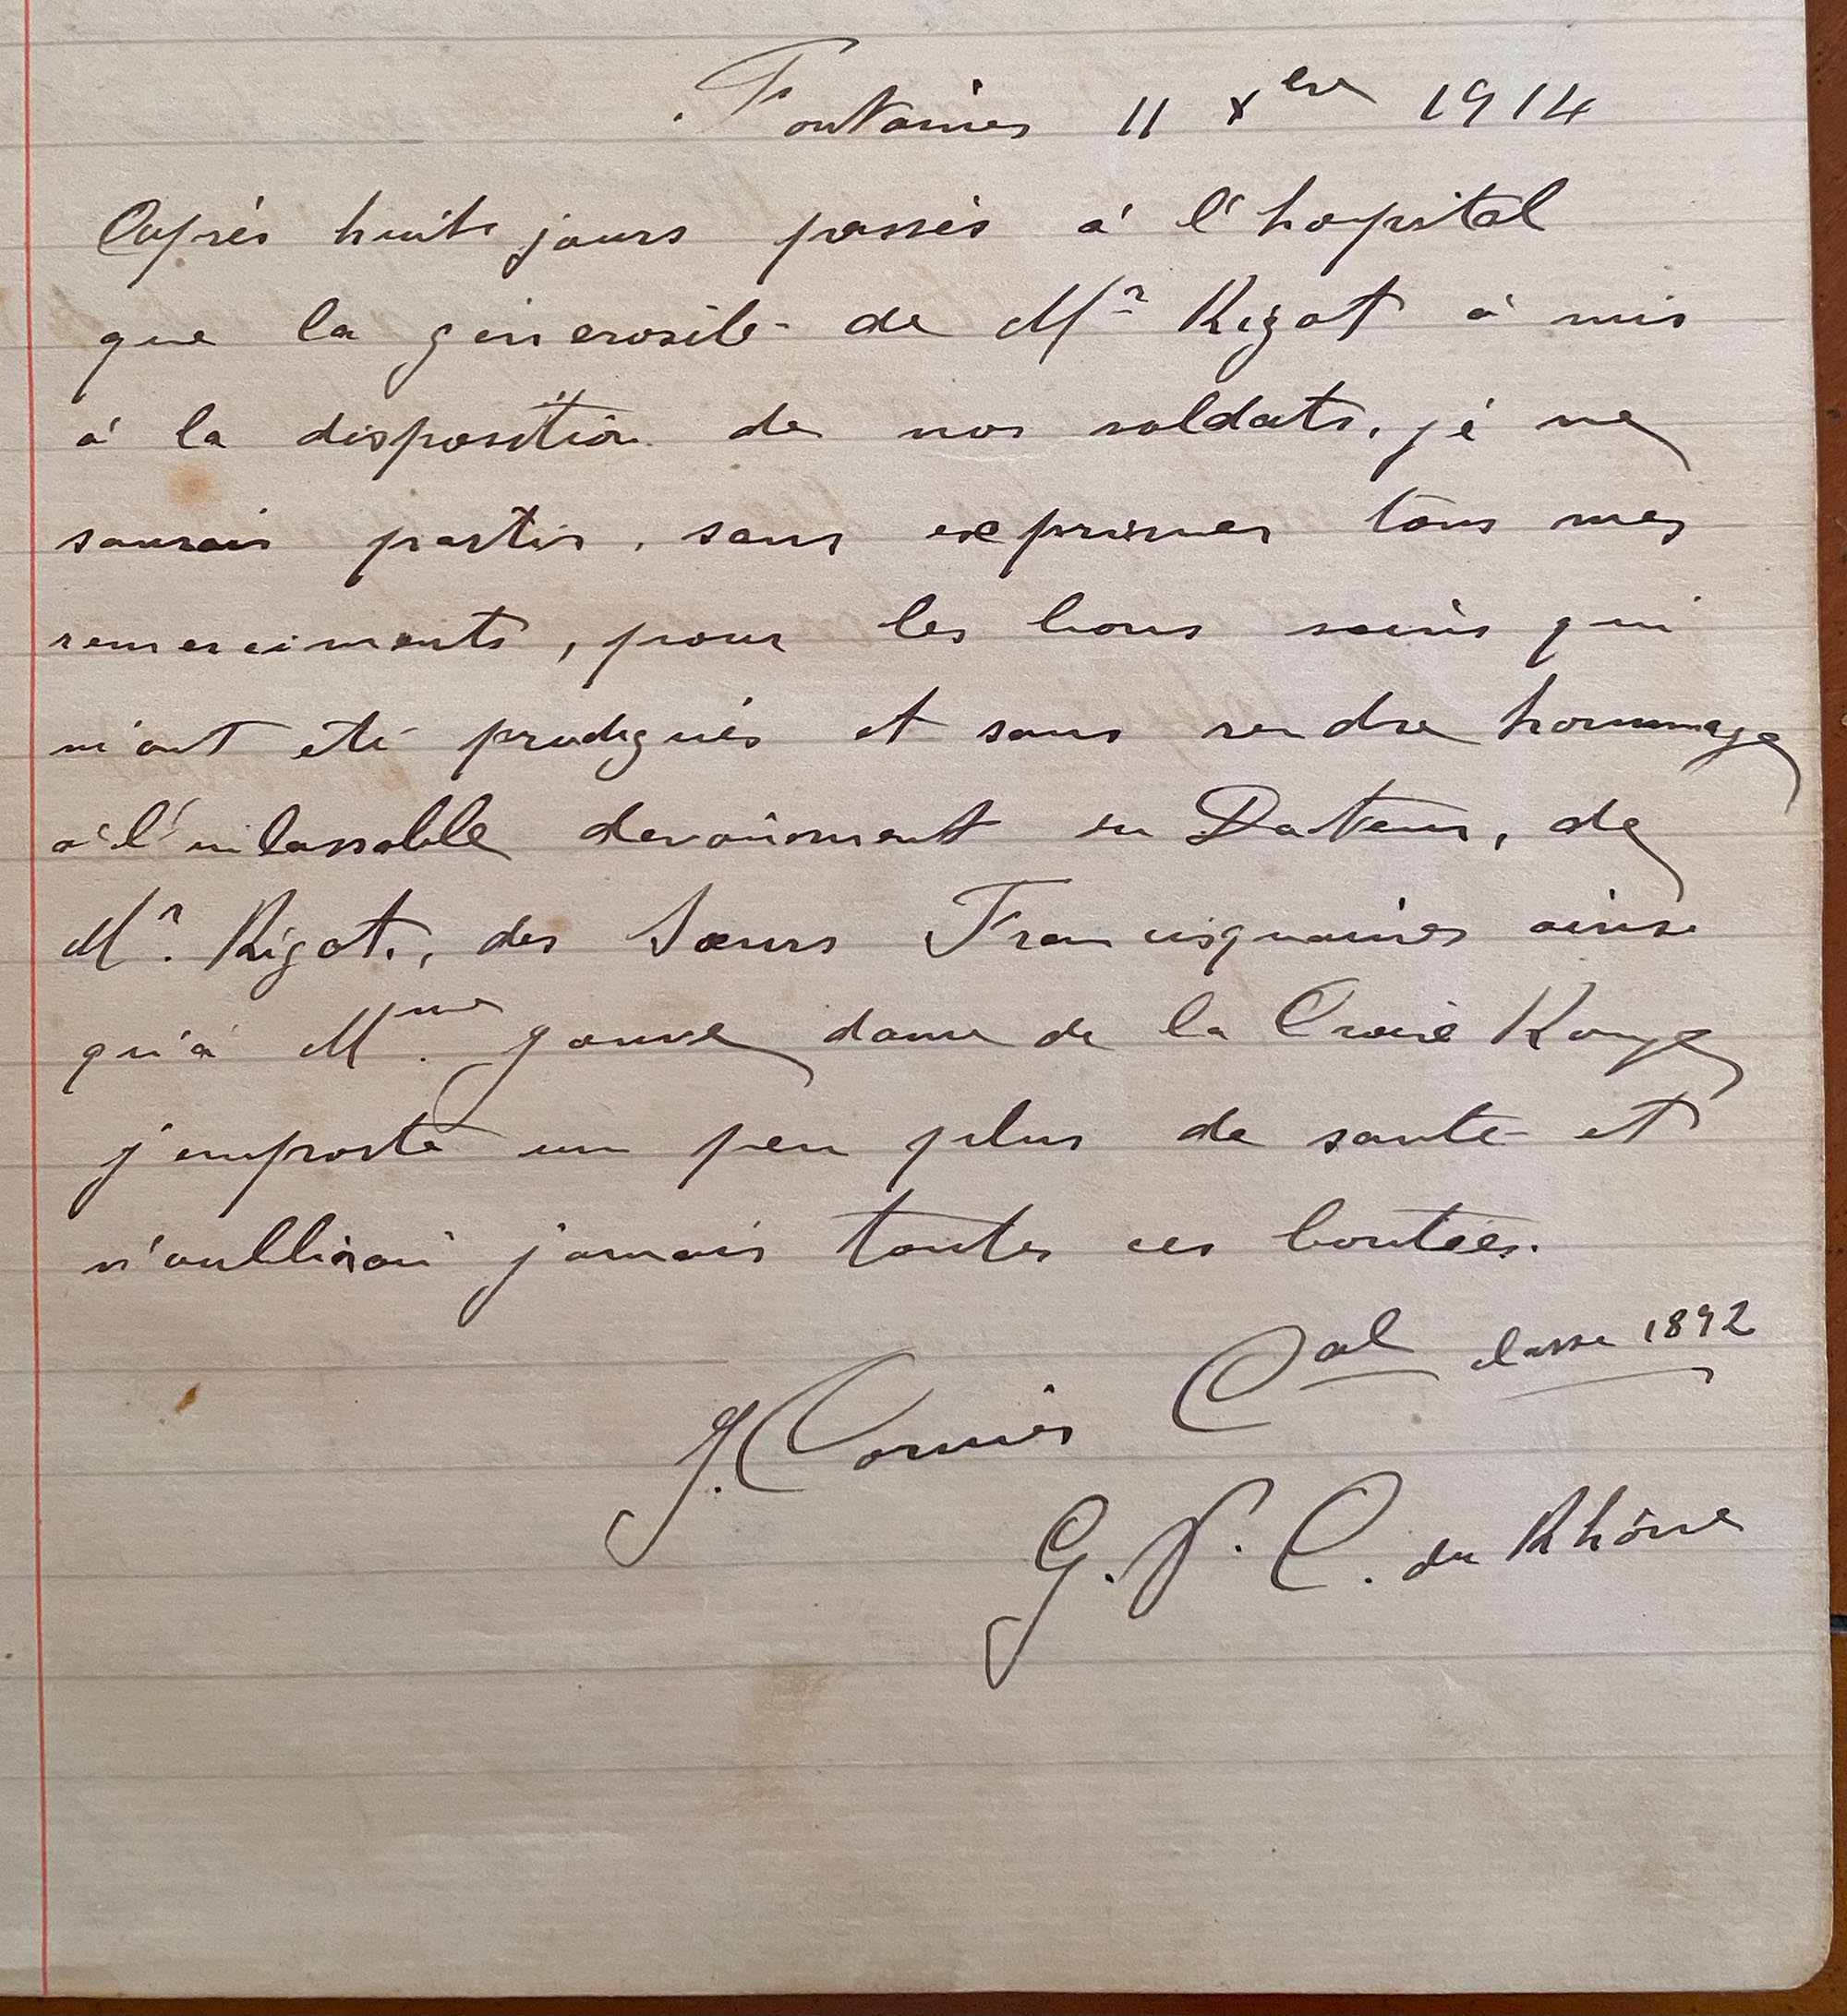 Fontaines 11 Xbre 1914
Après huits jours passés à l'hopital
que la génerosité de Mr Rigot à mis
à la disposition de nos soldats, je ne
saurais partir, sans exprimer tous mes
remerciments, pour les bons soins qui
m'ont été prodigués et sans rendre hommage
à l'inlassable devoûment du Docteur, de
Mr. Rigot, des Sœurs Francisquaines ainsi
qu'à Mme. dame de la Croix Rouge
j'emporte un peu plus de santé et
n'oublirai jamais toutes ces bontées.
Cal classe 1892
J. Cornier
G. V. C. du Rhône